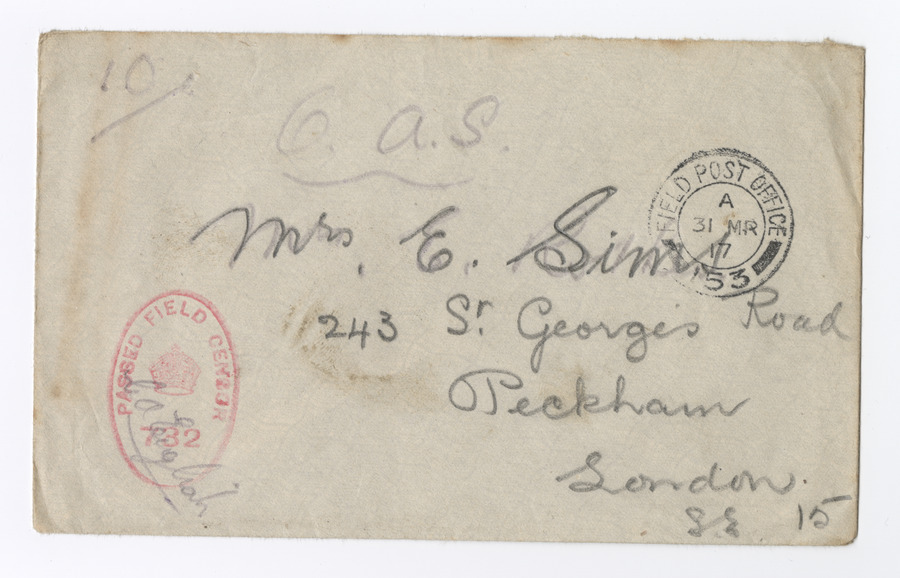 10/
O. A. S.
FIELD POST OFFICE
A
31 MR
17
53
Mrs. E. Sims
243 St. Georges Road
Peckham
London.
S.E 15
PASSED FIELD CENSOR
732